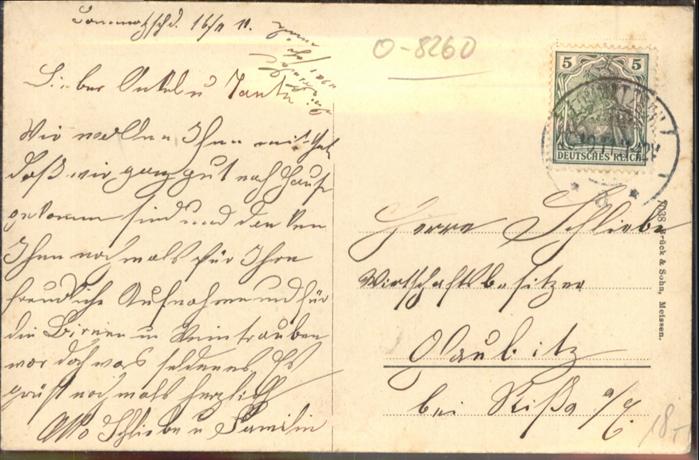 Lommatzsch d. 16/9 11.
Lieber Onkel u Tante
Wir wollen Ihnen mittheilen
daß wir ganz gut nach Hause
gekommen sind und danken
Ihnen nochmals für Ihre
freundliche Aufnahme und für
die Birnen u Weintrauben
war doch was seltenes Es
grüßt nochmals herzlich
Otto Schliebe u Familie
0-8260
5 5
DEUTSCHES REICH
Herrn Schliebe
Wirtschaftsbesitzer
Glaubitz
bei Rißa a/E.
1938 Brück & Sohn, Meissen.
18,-